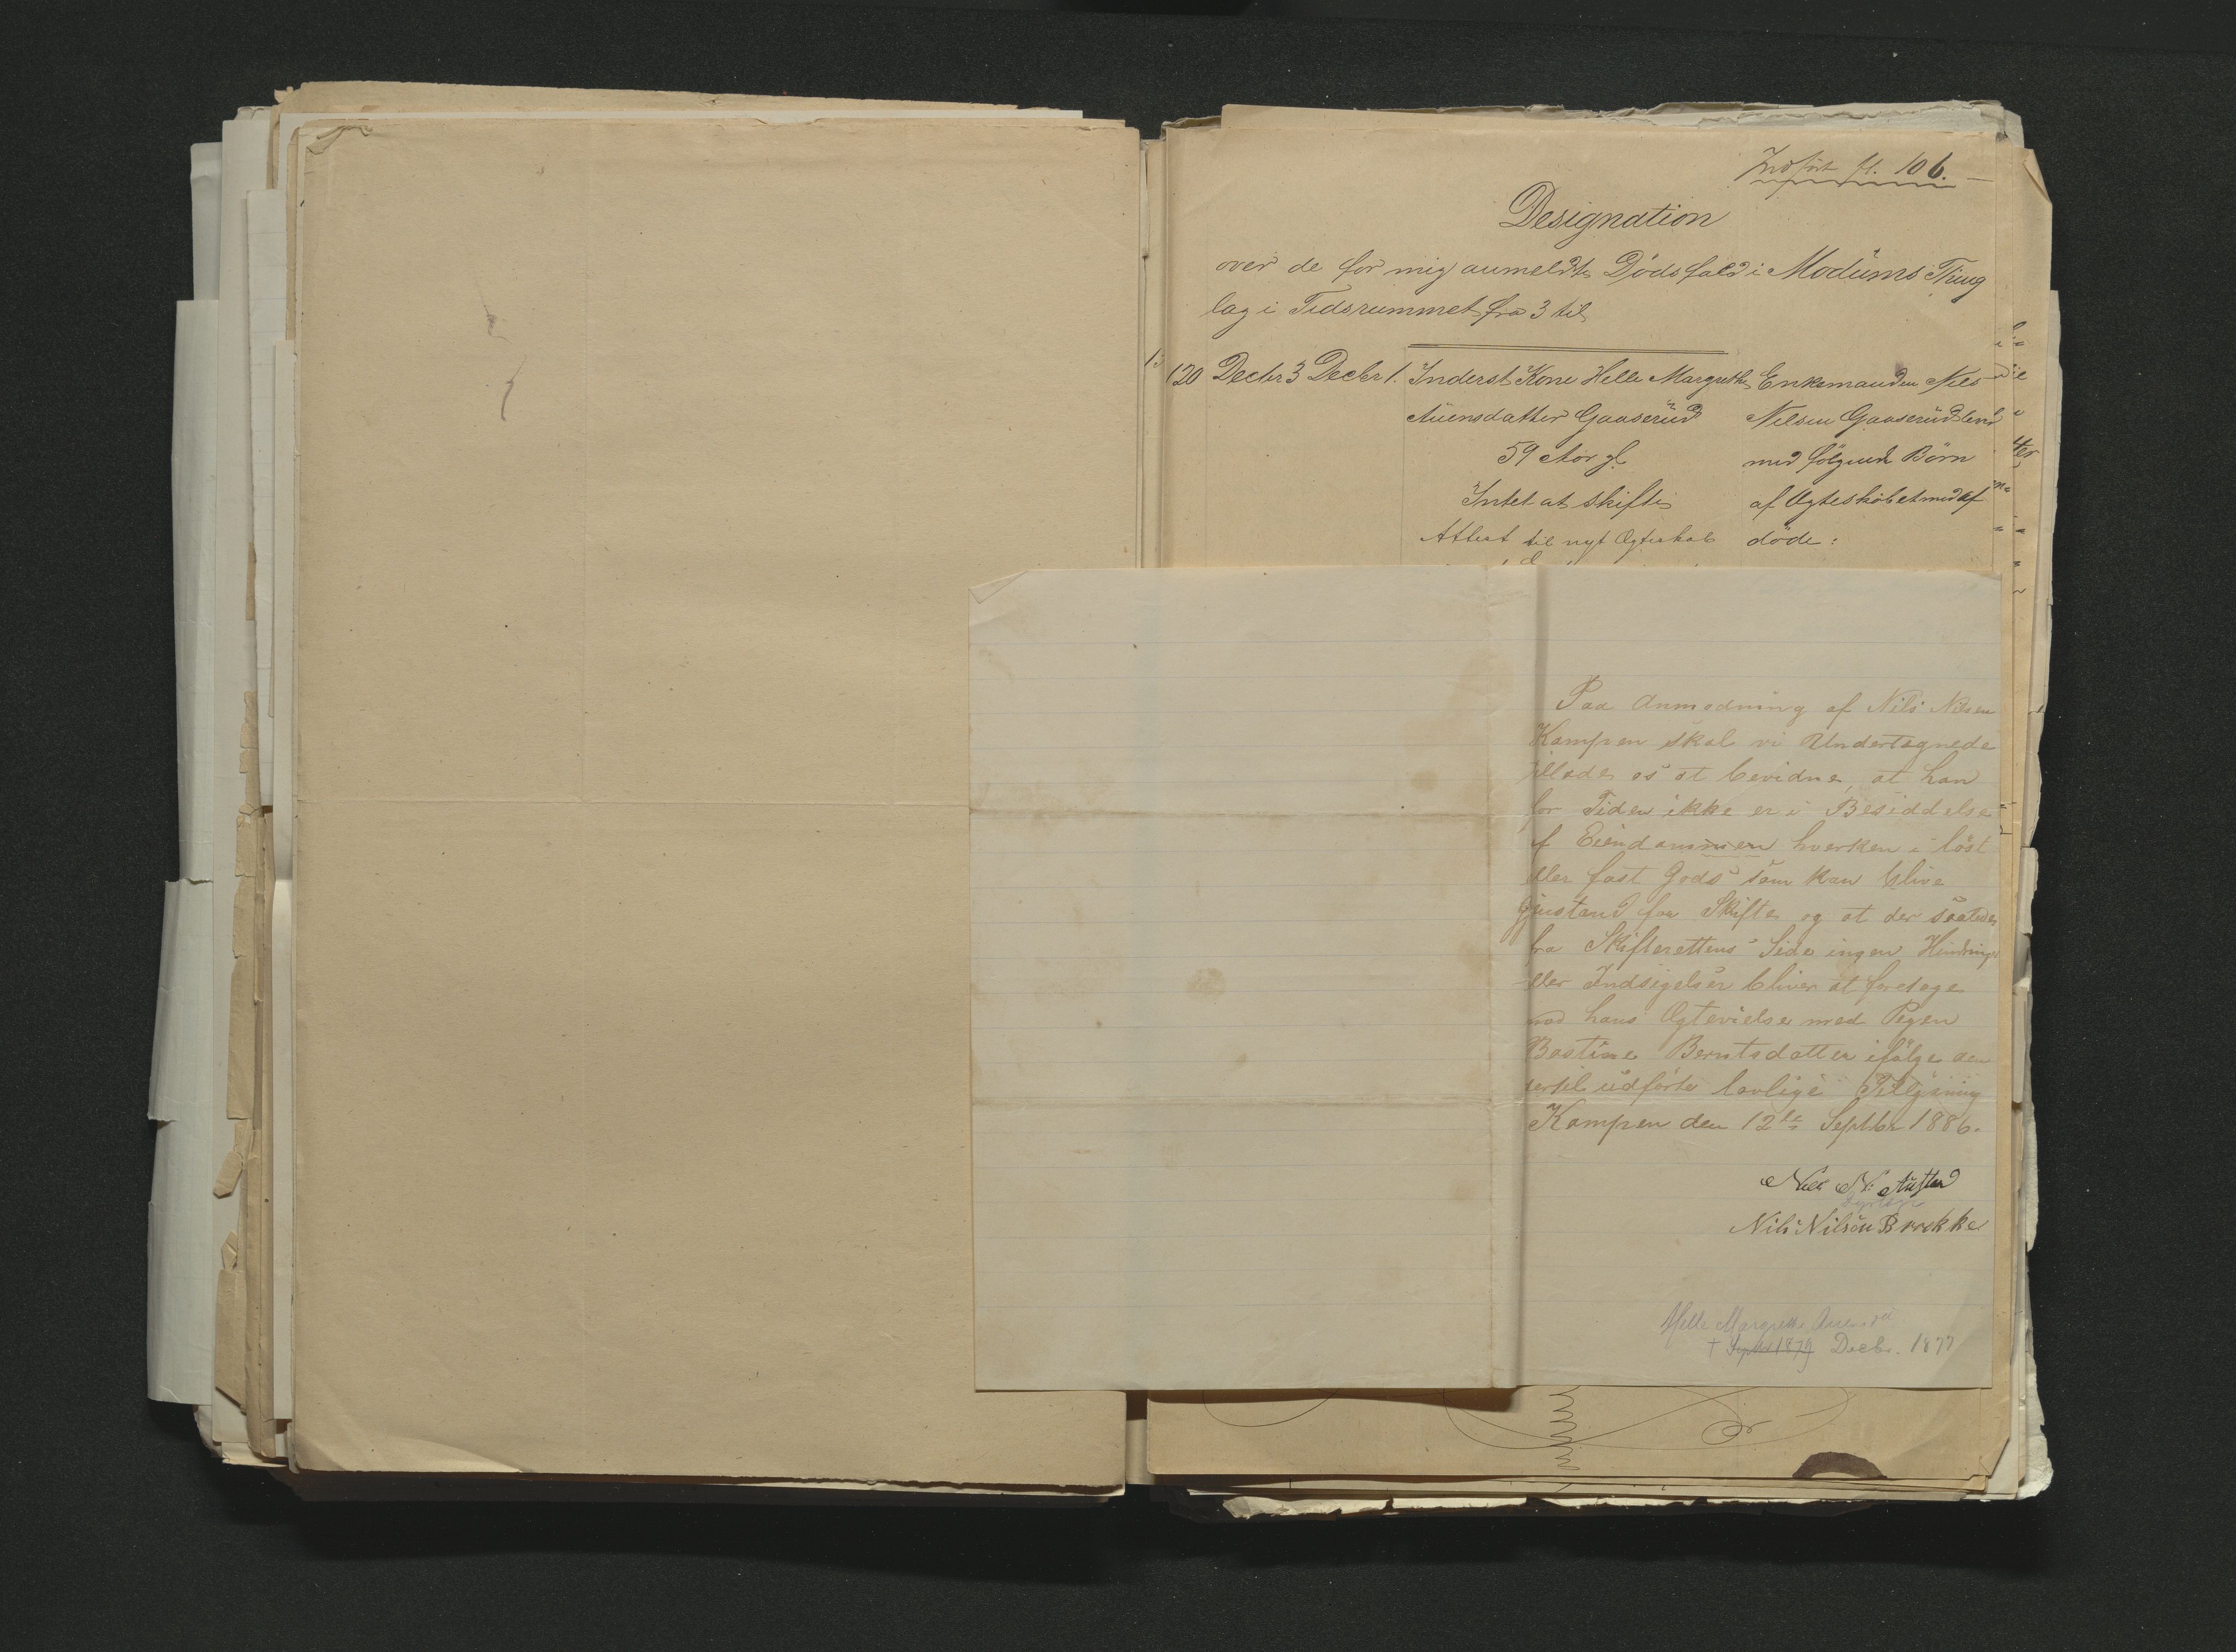 Indført fl. 106.
Designation
over de for mig anmeldte Dødsfald i Modums Thing
lag i Tidsrummet fra 3 til
120 Decbr 3 Decbr 1. Inderst Kone Helle Margrethe
Auensdatter Gaaserud
59 Aar gl
Intet at skifte
Attest til nyt Ægteskab
Enkemanden Niels
Nilsen Gaaserud
med følgende Børn
af Ægteskabet med af
døde:
Paa Anmodning af Nils Nilsen
Kampen skal vi Undertegnede
tillade os at bevidne, at han
for Tiden ikke er i Besiddelse
af Eiendommen hverken i løst
eller fast Gods som kan blive
Gjenstand for Skifte og at der saaledes
fra Skifterettens Side ingen Hindringer
eller Indsigelser bliver at foretage
mod hans Ægtevielse med Pigen
Bastine Berntsdatter ifølge den
dertil udførte lovlige
Kampen den 12te Septbr 1886.
Nils N.
Nils Nilsen Brekke
Helle Margrethe Auensd
† Septbr 1879 Decbr. 1877